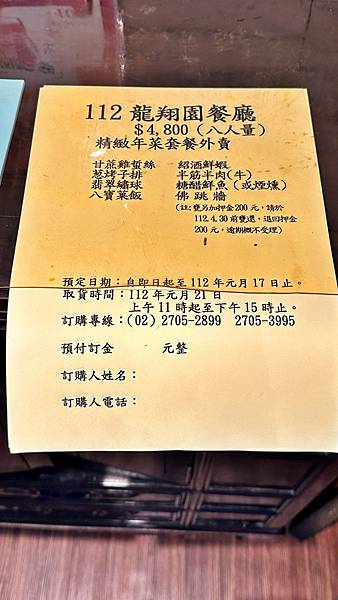 112 龍翔園餐廳
$4,800（八人量）
精緻年菜套餐外賣
甘蔗雞蜇絲　紹酒鮮蝦
葱烤子排　半筋半肉(牛)
翡翠繡球　糖醋鮮魚（或煙燻）
八寶菓飯　佛跳牆
(註:甕另加押金200元，請於
112.4.30前甕還，退回押金
200元，逾期概不受理)
預定日期：自即日起至112年元月17日止。
取貨時間：112年元月21日
上午11時起至下午15時止。
訂購專線：(02) 2705-2899　2705-3995
預付訂金　　　元整
訂購人姓名：
訂購人電話：